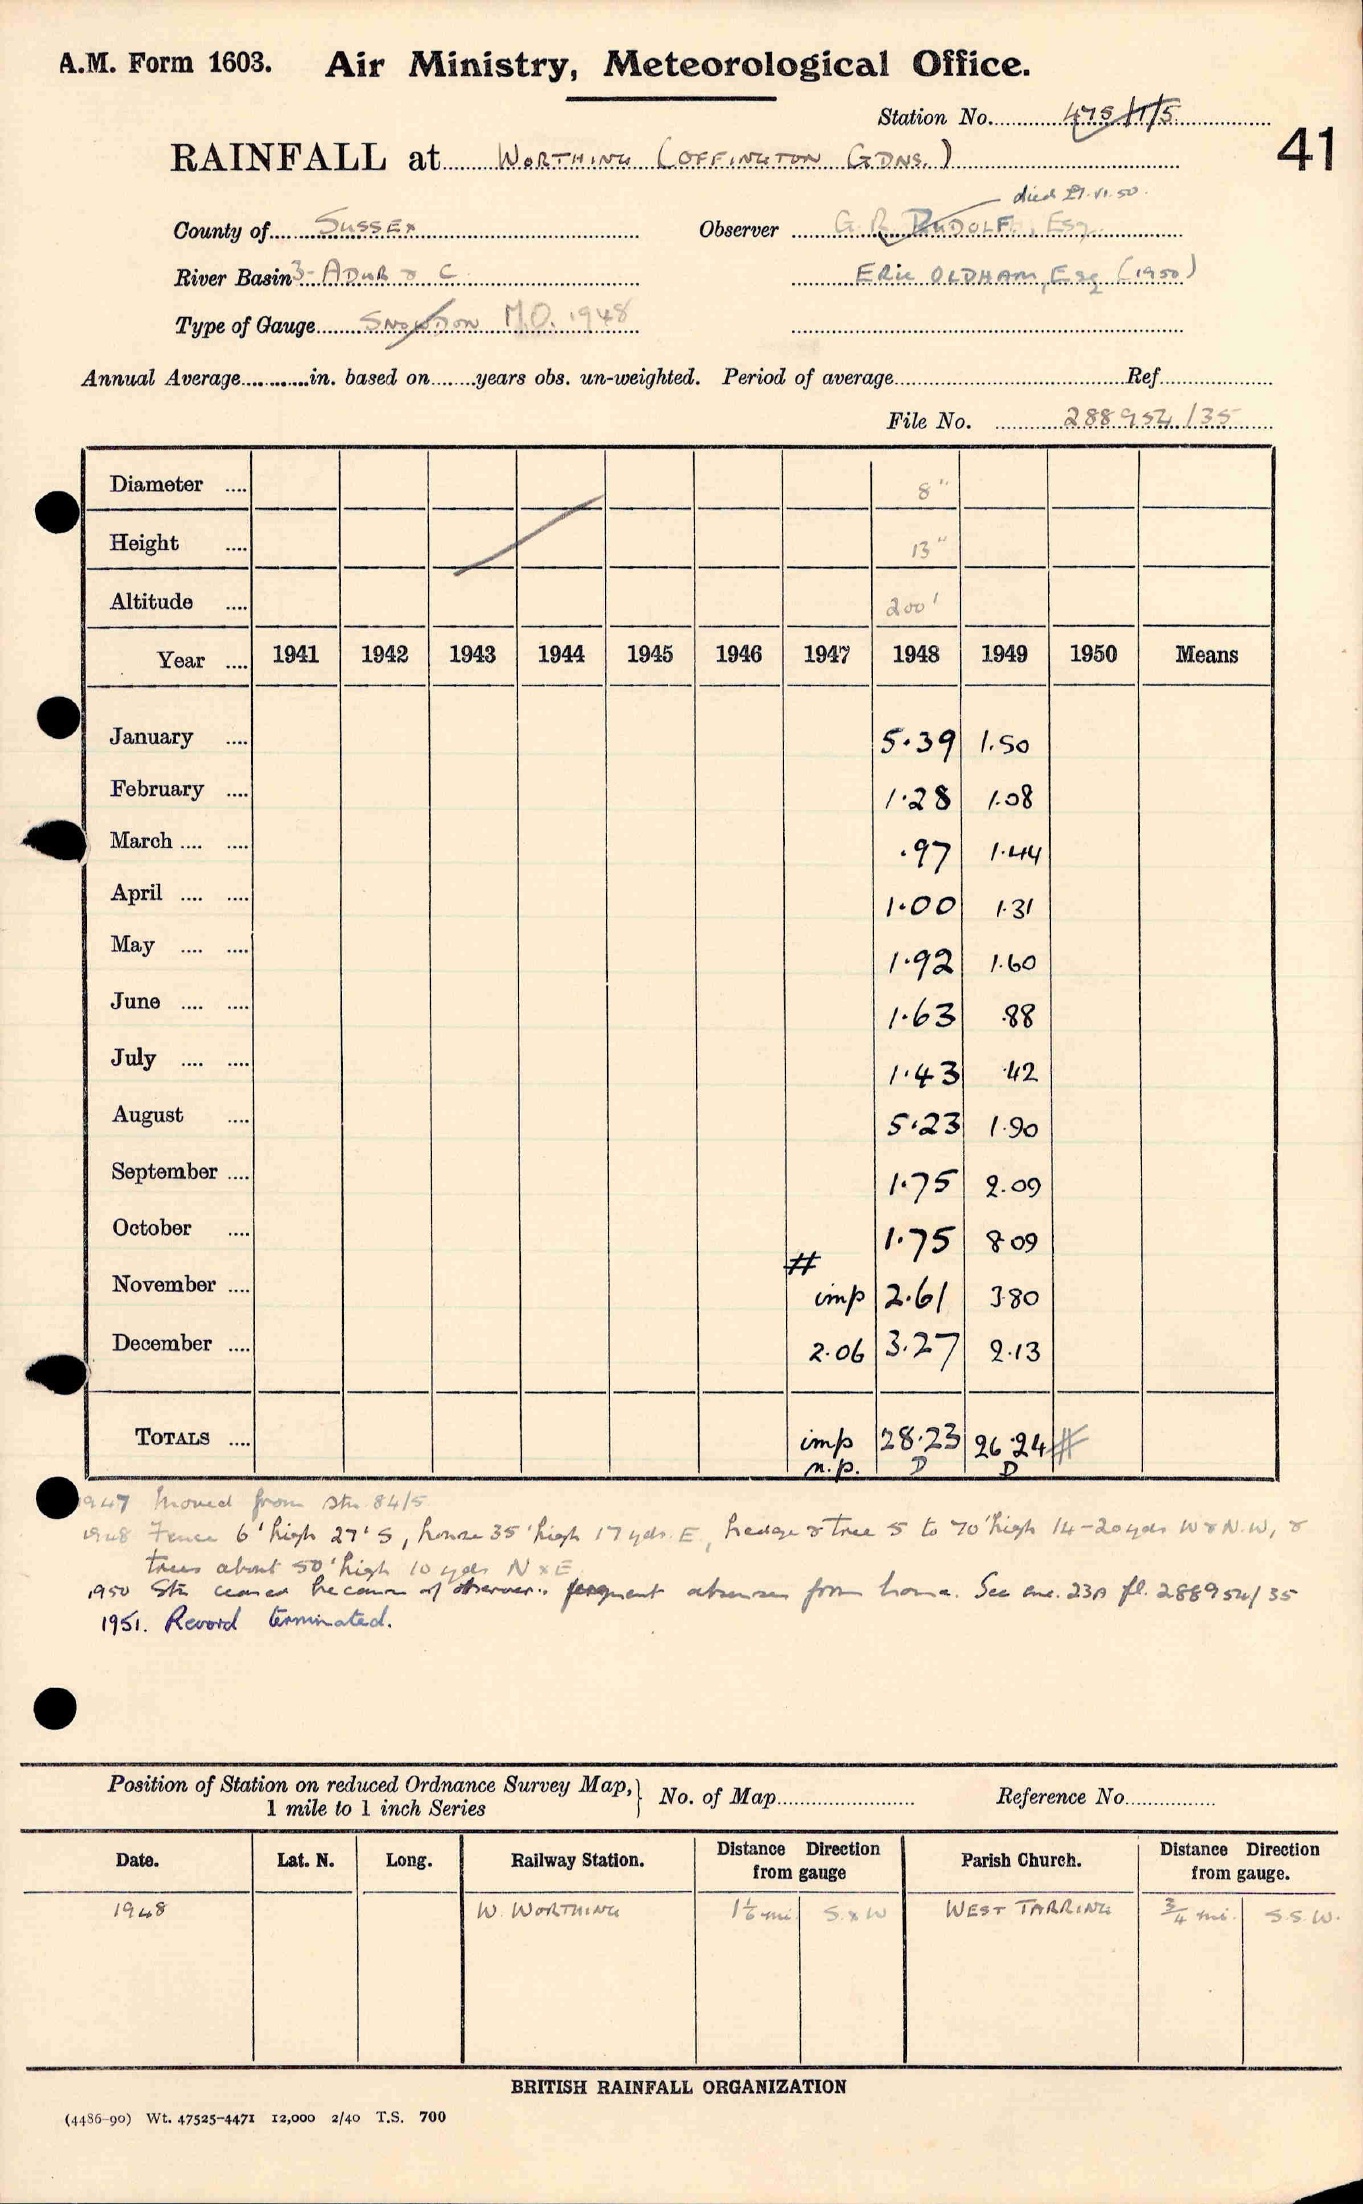 A.M. Form 1603. Air Ministry, Meteorological Office.
Station No. 475/1/5
41
RAINFALL at WORTHING (OFFINGTON GDNS.)
died 27.VI.50.
County of SUSSEX Observer G. R. RUDOLF, ESQ.
River Basin 3-ADUR & C ERIC OLDHAM, Esq (1950)
Type of Gauge SNOWDON M.O. 1948
Annual Average............in. based on........years obs. un-weighted. Period of average Ref.
File No. 288954/35
Diameter .... 8"
Height .... 13"
Altitude .... 200'
Year .... 1941 1942 1943 1944 1945 1946 1947 1948 1949 1950 Means
January .... 5.39 1.50
February .... 1.28 1.08
March .... .... .97 1.44
April .... .... 1.00 1.31
May .... .... 1.92 1.60
June .... .... 1.63 .88
July .... .... 1.43 .42
August .... 5.23 1.90
September .... 1.75 2.09
October .... 1.75 8.09
#
November .... imp 2.61 3.80
December .... 2.06 3.27 2.13
TOTALS .... imp 28.23 26.24 #
n.p. D D
1947 Moved from stn 84/5
1948 Fence 6' high 27' S, house 35' high 17 yds. E, hedge & tree 5 to 70' high 14-20 yds W & N.W, &
trees about 50' high 10 yds N x E
1950 Stn ceased because of observer's frequent absences from home. See enc. 23A fl. 288954/35
1951. Record terminated.
Position of Station on reduced Ordnance Survey Map, } No. of Map Reference No.
1 mile to 1 inch Series
Date. Lat. N. Long. Railway Station. Distance Direction from gauge Parish Church. Distance Direction from gauge.
1948 W. WORTHING 1 1/6 mi. S.x W WEST TARRING 3/4 mi. S.S.W.
BRITISH RAINFALL ORGANIZATION
(4486-90) Wt. 47525-4471 12,000 2/40 T.S. 700